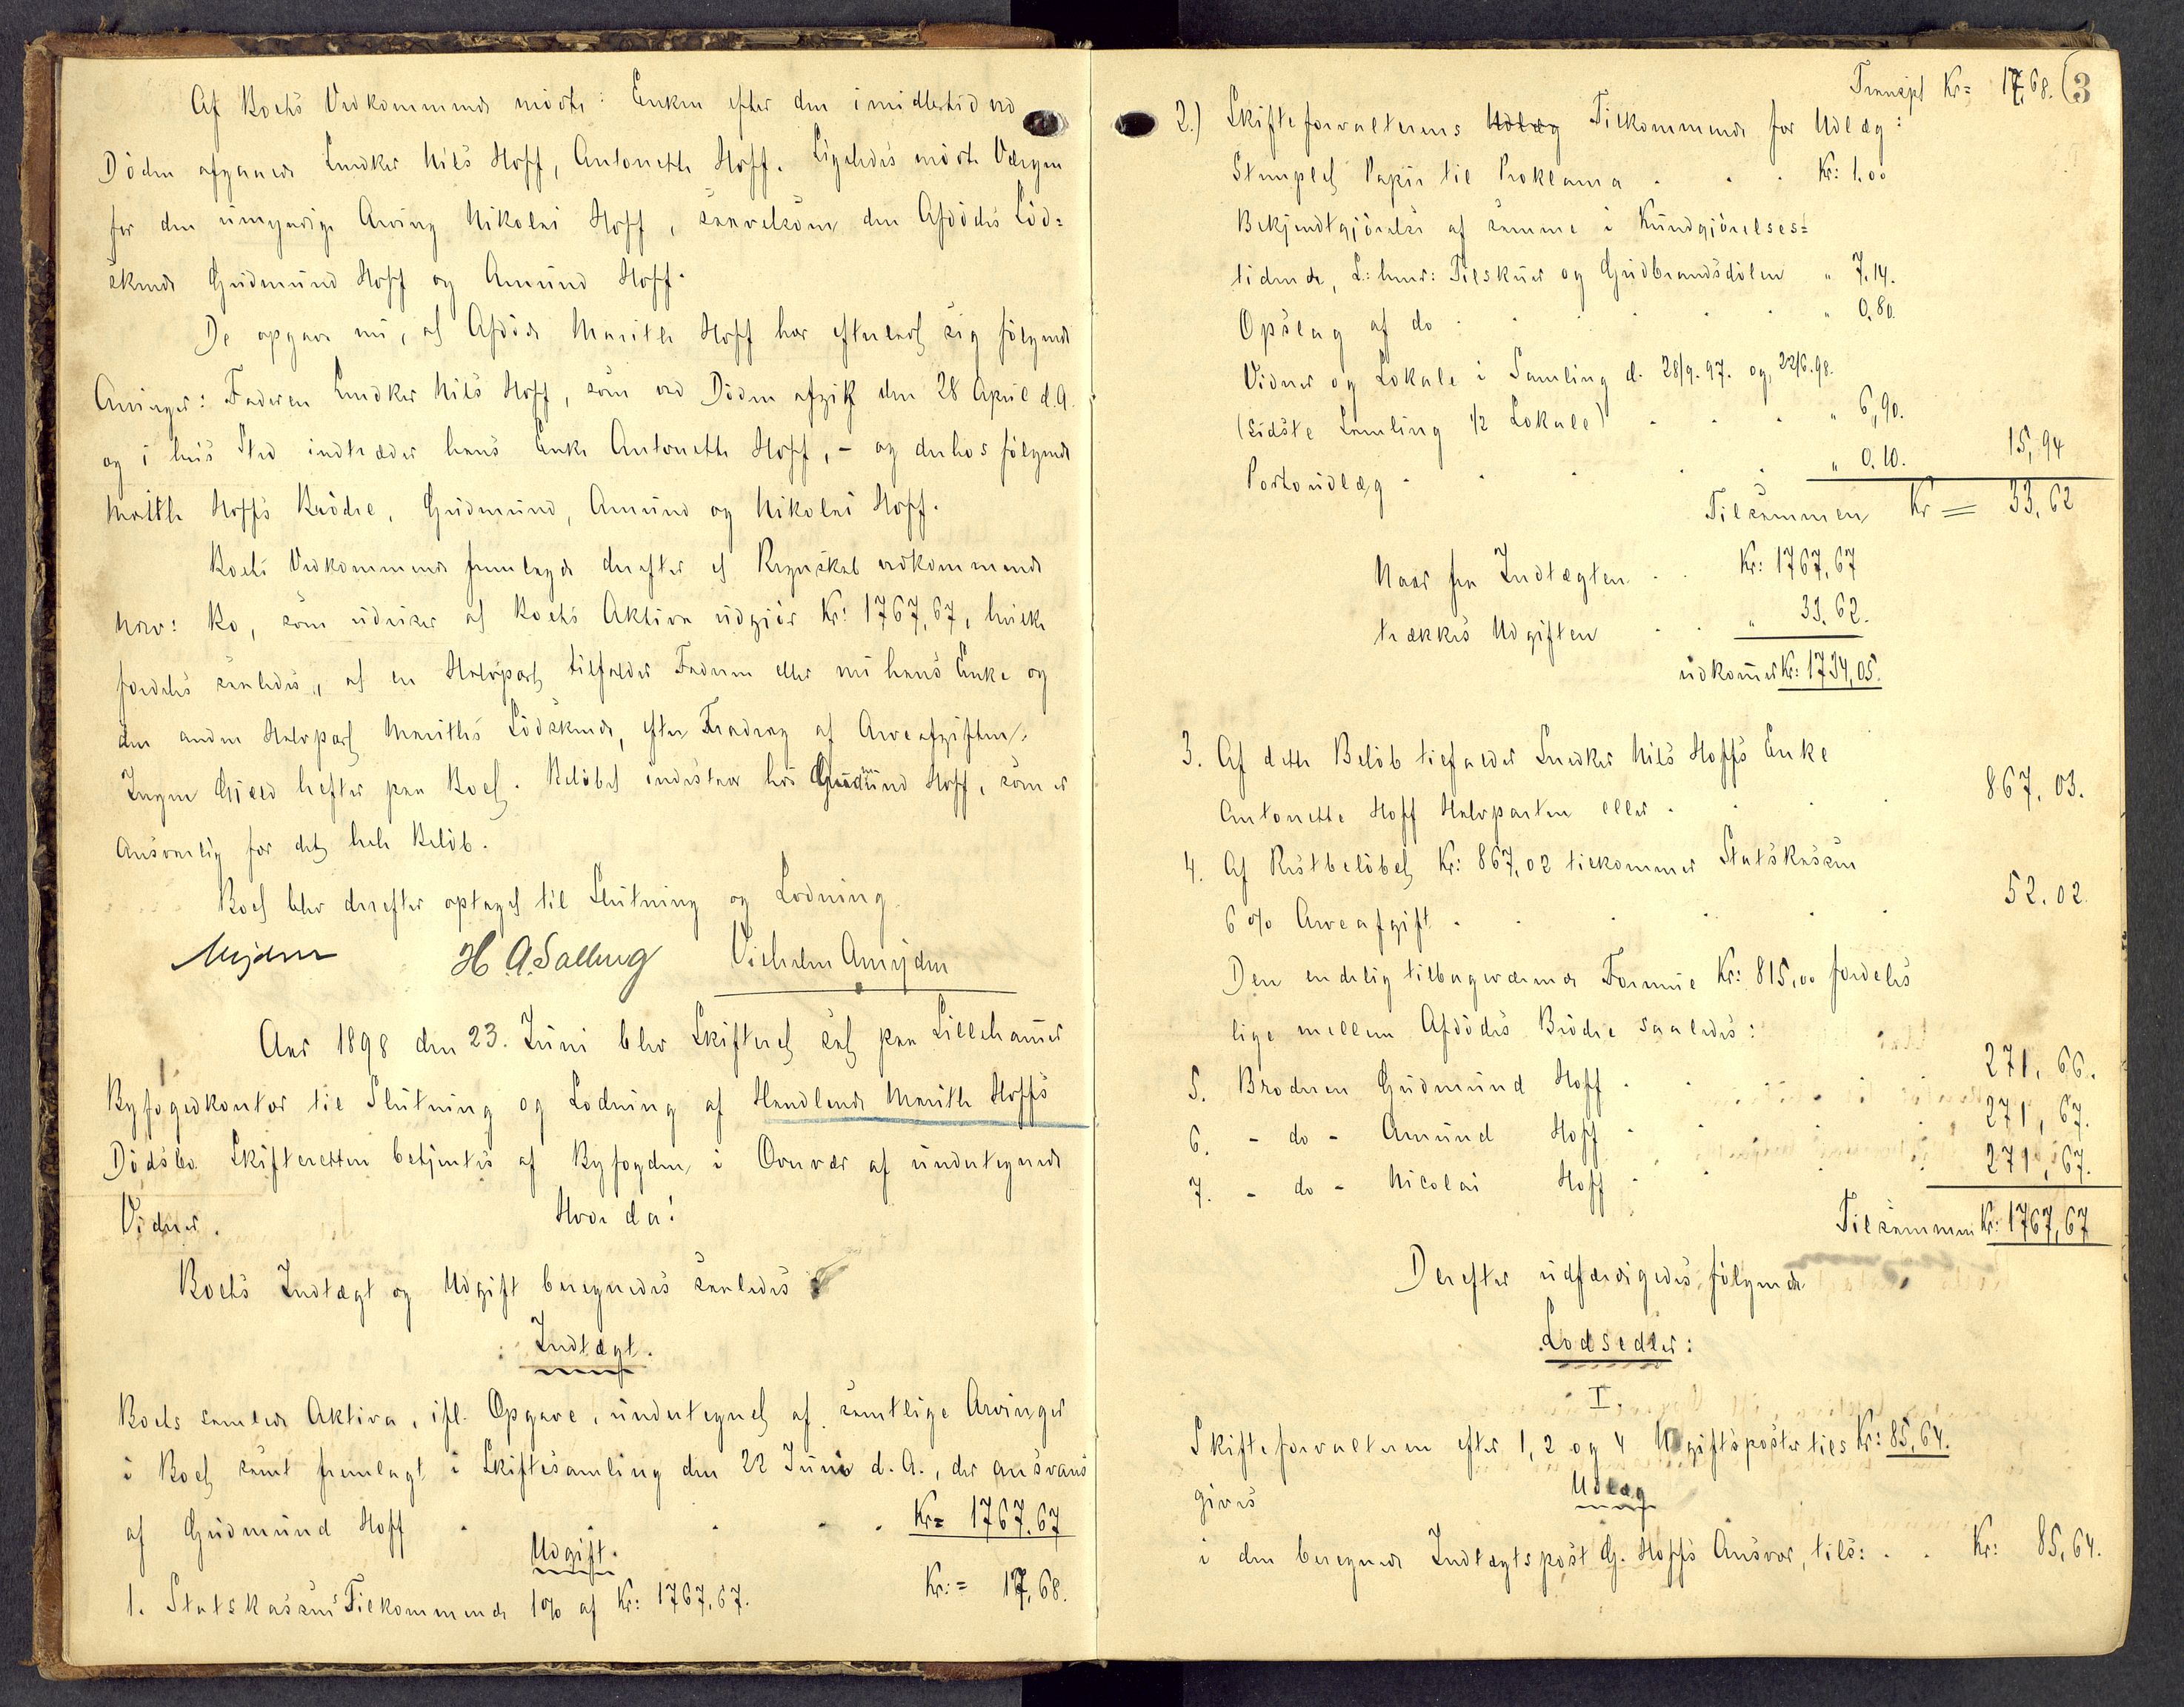 Af Boets Vedkommende mødte: Enken efter den imidlertid ved
Döden afgaaede Snedker Nils Hoff, Antonette Hoff. Ligeledes mödte Værgen
for den umyndige Arving Nikolai Hoff, saavelsom den Afdödes Söd-
skende Gudmund Hoff og Amund Hoff.
De opgave nu, at Afdöde Marithe Hoff har efterladt sig fölgende
Arvinger: Faderen Snedker Nils Hoff, som ved Döden afgik den 28 April d.A.
og i hvis Sted indtræder hans Enke Antonette Hoff, - og derhos fölgende
Marithe Hoffs Brödre, Gudmund, Amund og Nikolai Hoff.
Boets Vedkommende fremlagde derefter et Regnskab vedkommende
nærv: Bo, som udviser at Boets Aktiva udgjör Kr: 1767,67, hvilke
fordeles saaledes, at en Halvpart tilfalder Faderen eller nu hans Enke og
den anden Halvpart Marithes Södskende, efter Fradrag af Arveafgiften.
Ingen Gjæld hefter paa Boet. Belöbet indestaar hos Gudmund Hoff, som er
Ansvarlig for det hele Belöb.
Boet blev derefter optaget til Slutning og Lodning.
H. A. Salling Vilhelm
Aar 1898 den 23. Juni blev Skifteret sat paa Lillehamer
Byfogedkontor til Slutning og Lodning af Handlende Marithe Hoffs
Dödsbo. Skifteretten betjentes af Byfogden i Overvær af undertegnede
Vidner. Hvor da:
Boets Indtægt og Udgift beregnedes saaledes
Indtægt.
Boets samlede Aktiva, ifl. Opgave, undertegnet af samtlige Arvinger
i Boet samt fremlagt i Skiftesamling den 22 Juni d. A., der ansvares
af Gudmund Hoff . . . . Kr= 1767.67
Udgift.
1. Statskassens Tilkommende 1% af Kr: 1767.67. Kr:= 17,68.
Transpt Kr= 17,68. (3
2.) Skifteforvalterens Udlæg Tilkommende for Udlæg:
Stemplet Papir til Proklama . . . Kr: 1.00
Bekjendtgjörelse af samme i Kundgjörelses-
tidende, L:hmr: Tilskuer og Gudbrandsdölen " 7.14.
Opslag af do . . . . . " 0,80.
Vidner og Lokale i Samling d. 28/9. 97. og 22/6.98.
(sidste Samling 1/2 Lokale) . . . " 6,90.
Portoudlæg . . . . . " 0.10. 15,94
Tilsammen Kr = 33,62
Naar fra Indtægten . . Kr: 1767,67
trækkes Udgiften . . " 33.62.
udkomer Kr: 1734,05.
3. Af dette Belöb tilfalder Snedker Nils Hoffs Enke
Antonette Hoff Halvparten eller . . . 867.03.
4. Af Restbelöbet Kr: 867,02 tilkommer Statskassen
6 % Arveafgift . . . . . 52.02.
Den endelig tilbageværende Formue Kr: 815,00 fordeles
lige mellem Afdödes Brödre saaledes:
5. Broderen Gudmund Hoff . . . 271,66.
6. - do - Amund Hoff . . . 271,67.
7. - do - Nicolai Hoff . . . 271,67.
Tilsammen Kr: 1767,67
Derefter udfærdigedes fölgende
Lodsedler:
I.
Skifteforvalteren efter 1, 2 og 4 Udgiftsposter tils Kr: 85,64.
gives Udlæg
i den beregnede Indtægtspost G. Hoffs Ansvar, tils: . . Kr: 85,64.